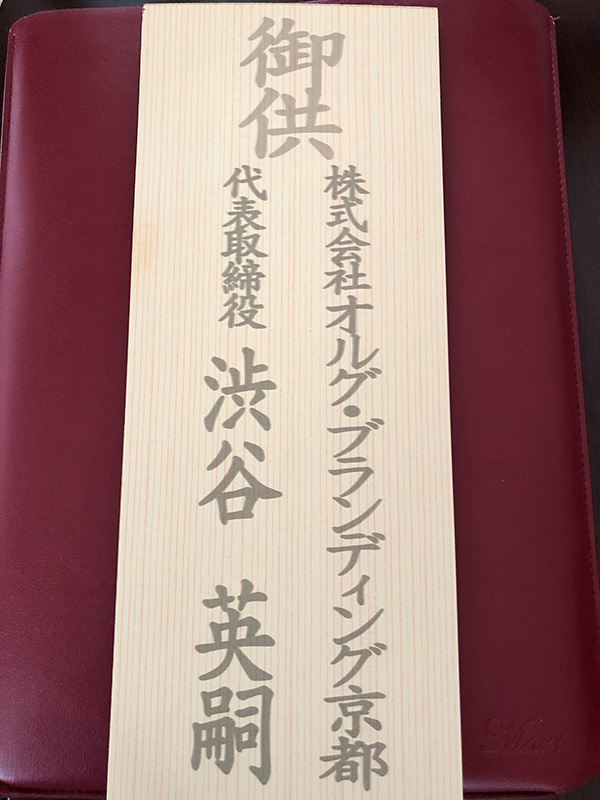 御供
株式会社オルグ・ブランディング京都
代表取締役 渋谷 英嗣